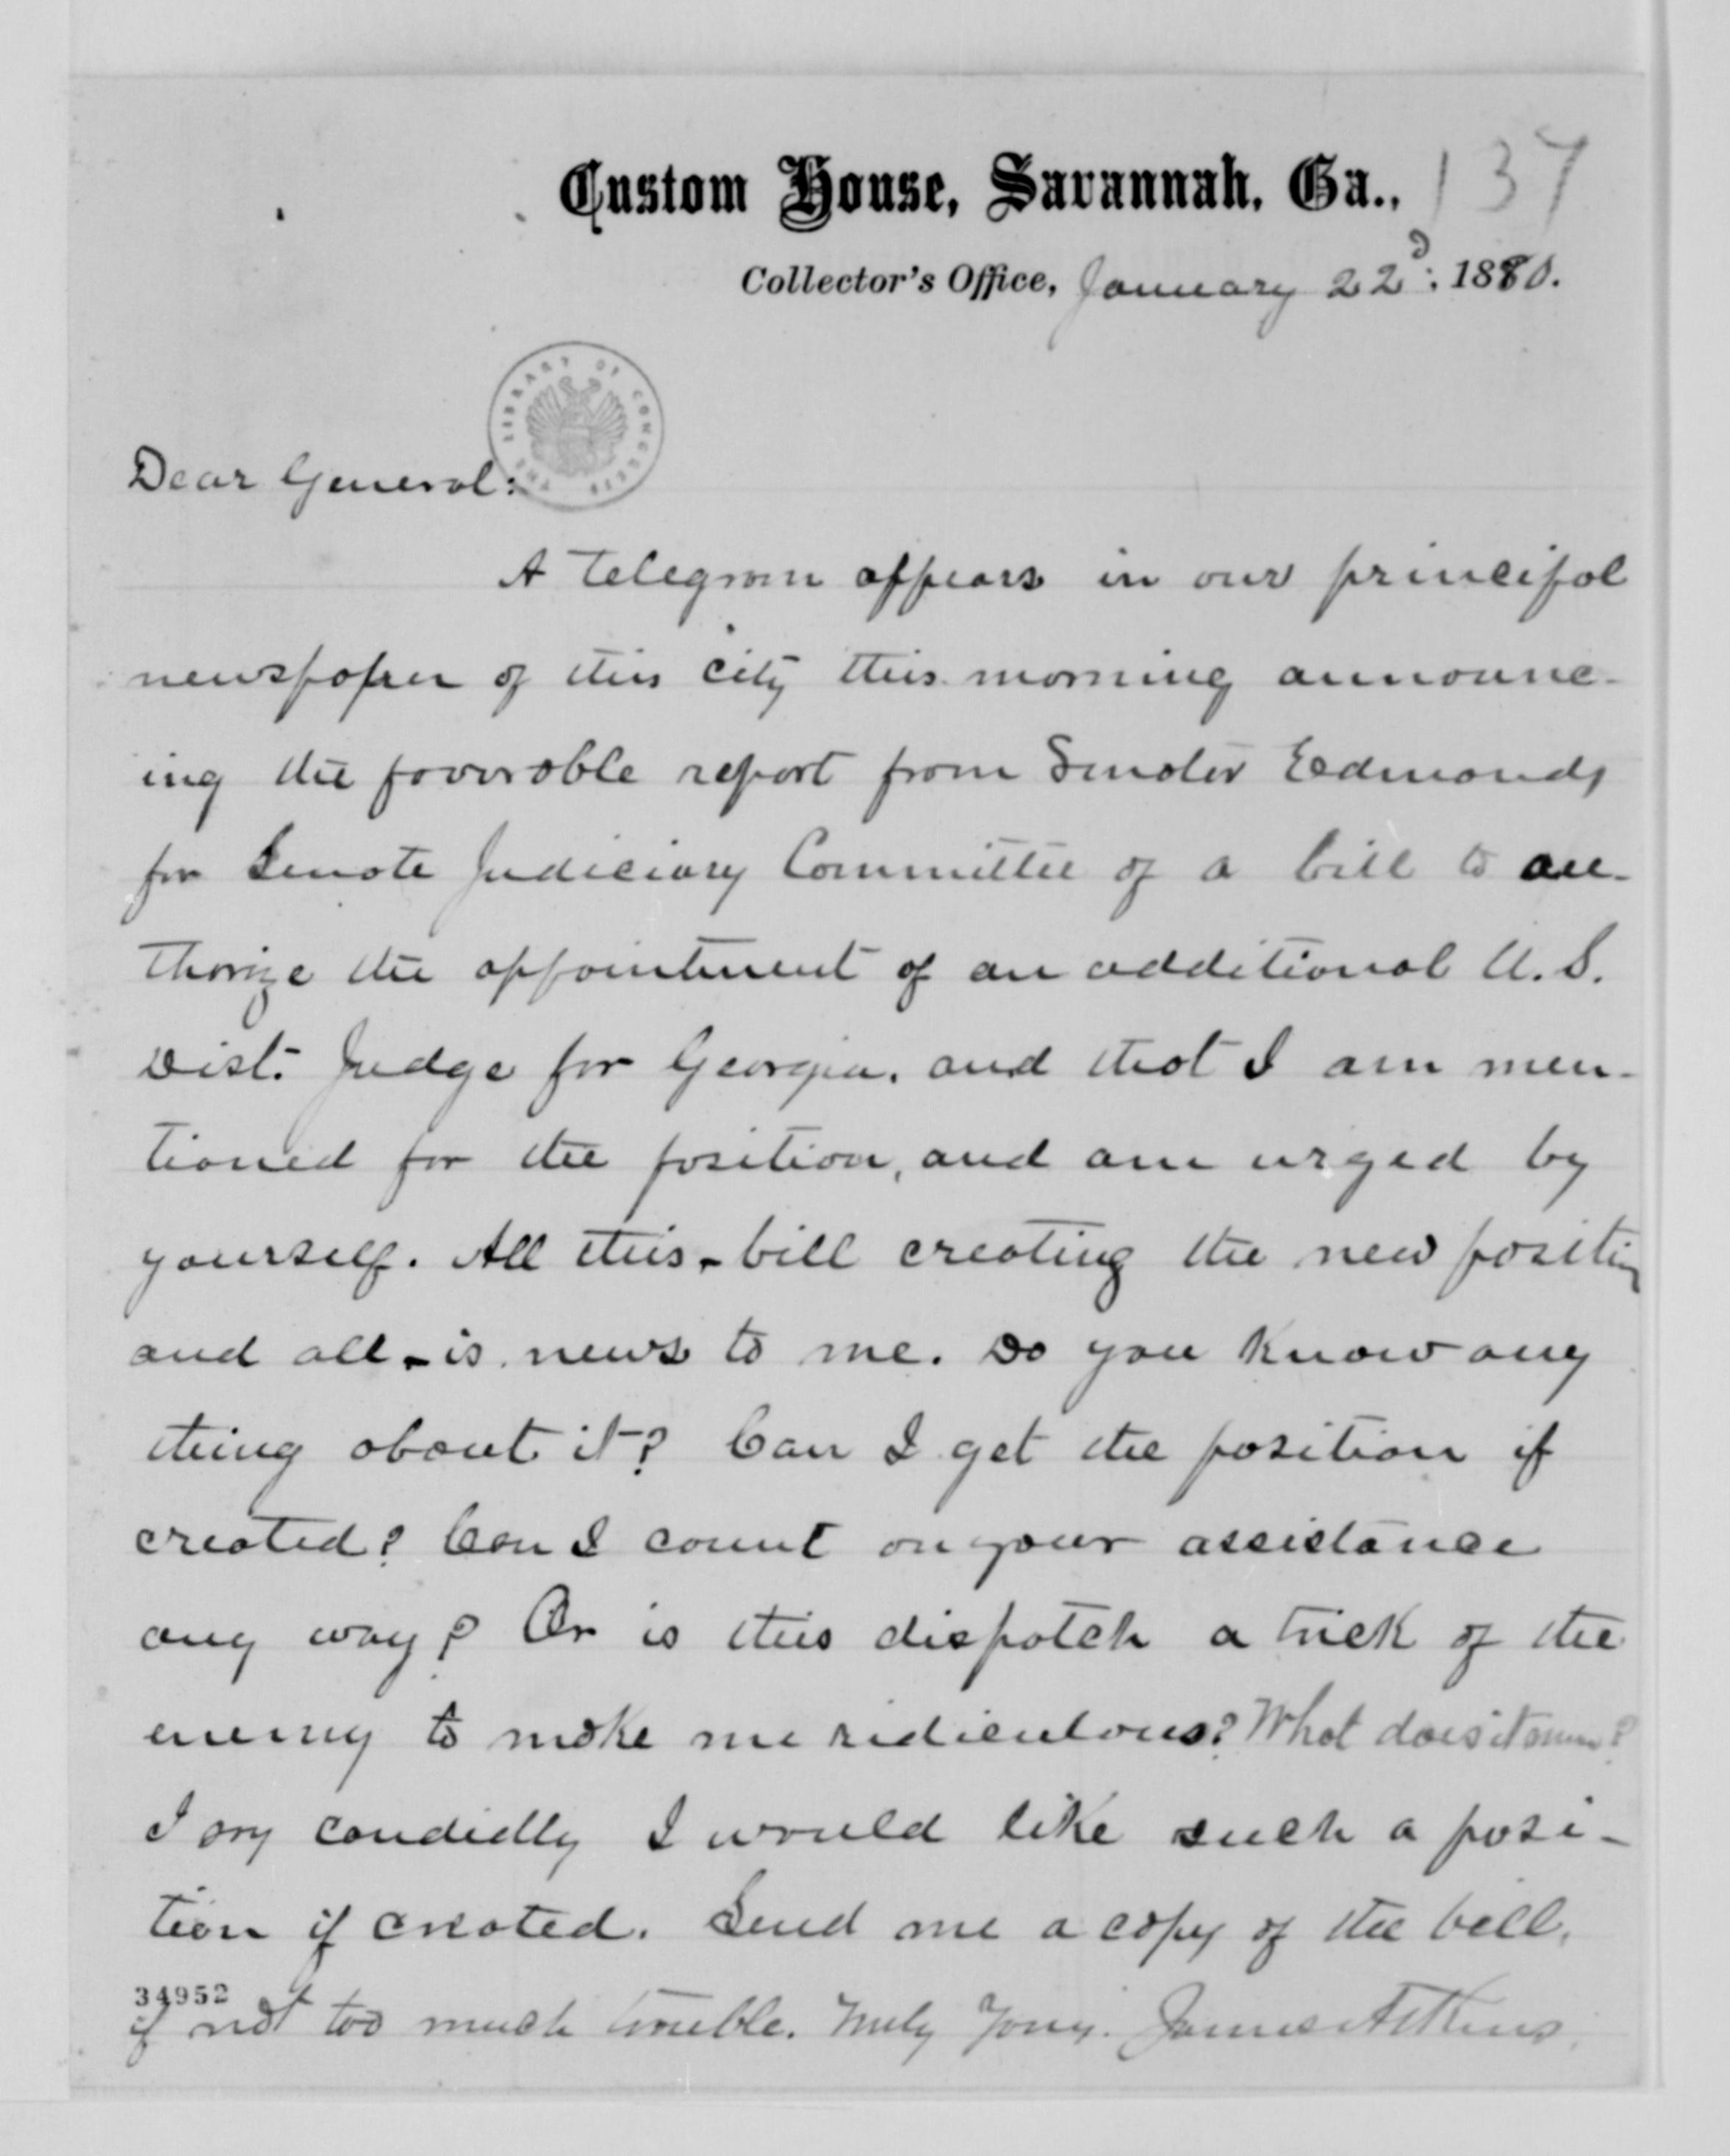 Custom House, Savannah, Ga., 137
Collector's Office, January 22d: 1880.
THE LIBRARY OF CONGRESS
Dear General:
A telegram appears in our principal
newspaper of this city this morning announc-
ing the favorable report from Senator Edmonds
for Senate Judiciary Committee of a bill to au-
thorize the appointment of an additional U.S.
Dist. Judge for Georgia, and that I am men-
tioned for the position, and am urged by
yourself. All this - bill creating the new position
and all - is news to me. Do you know any
thing about it? Can I get the position if
created? Can I count on your assistance
any way? Or is this dispatch a trick of the
enemy to make me ridiculous? What does it mean?
I say candidly I would like such a posi-
tion if created. Send me a copy of the bill,
34952
if not too much trouble. Truly Yours. James Atkins.